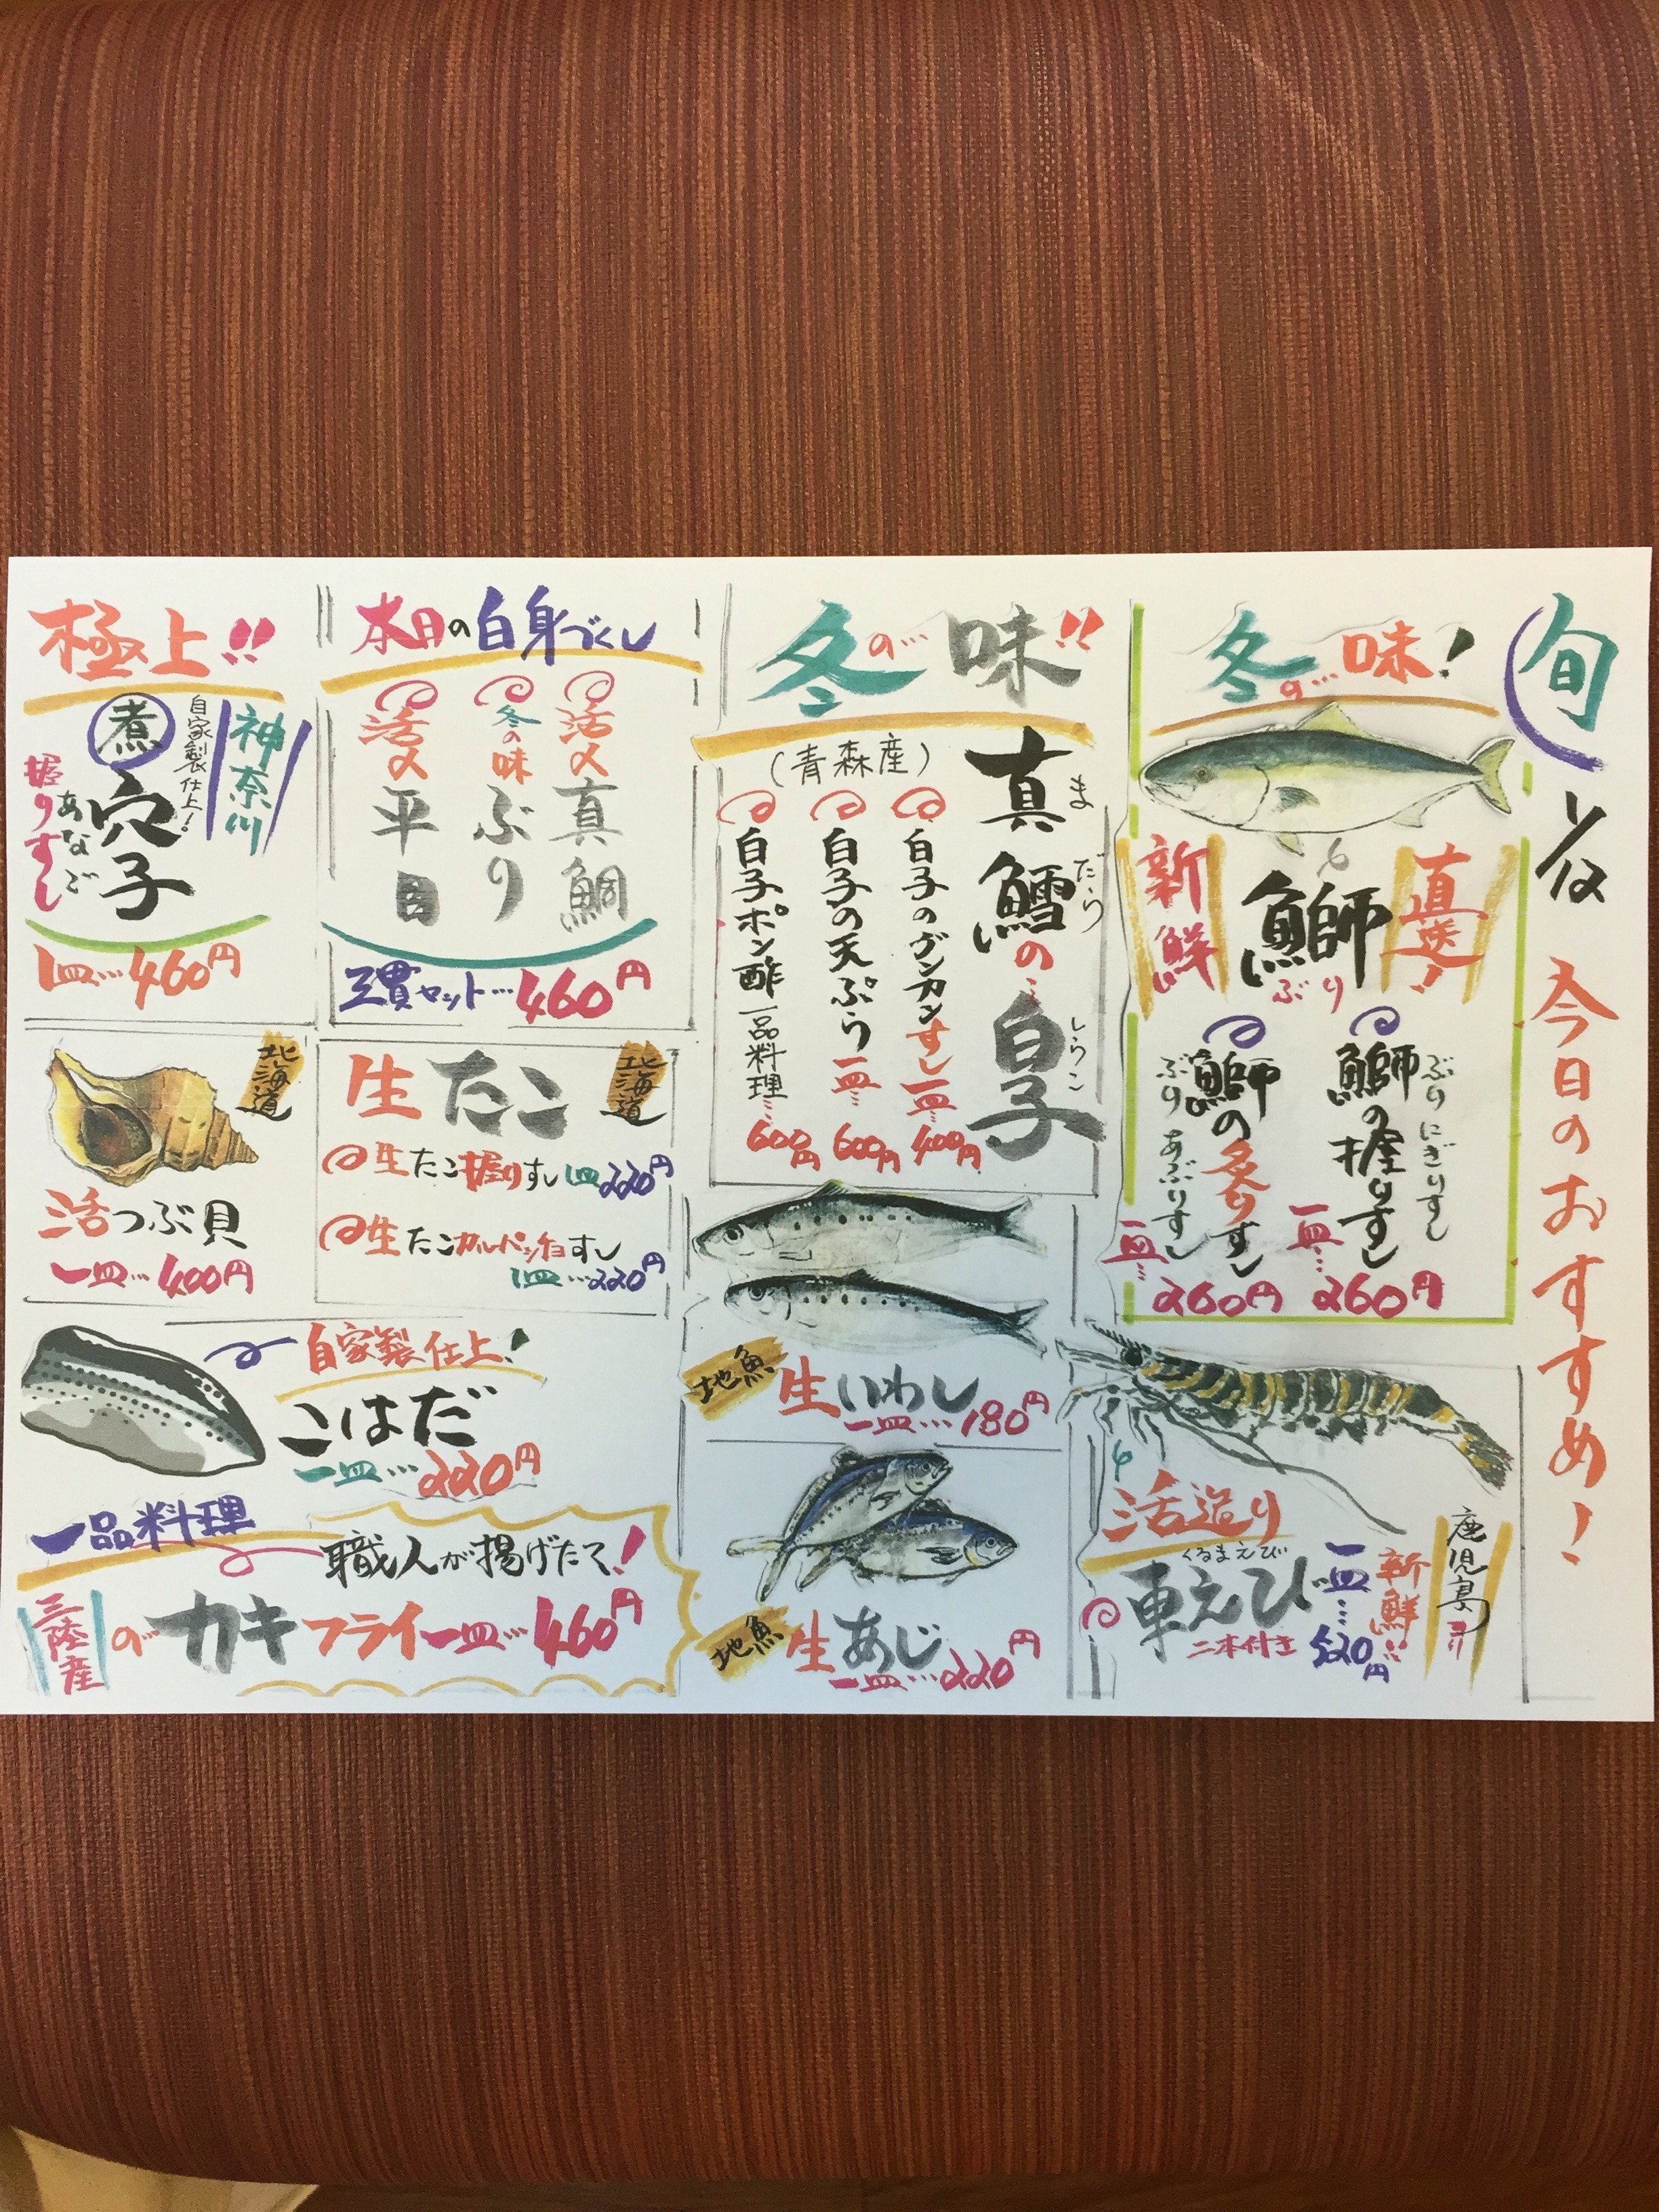 旬 12/12 今日のおすすめ!
冬の…味!
直送!
鰤
ぶり
新鮮
鰤の握りすし
ぶりにぎりすし
一皿…
260円
鰤の炙りすし
ぶりあぶりすし
一皿…
260円
冬の…味!!
真鱈の…白子
まだら
しらこ
(青森産)
白子のグンカンすし一皿…400円
白子の天ぷら一皿…600円
白子ポン酢一品料理…600円
本日の白身づくし
活〆真鯛
冬の味ぶり
活〆平目
三貫セット…460円
極上!!
神奈川
自家製仕上!
煮穴子
あなご
握りすし
1皿…460円
北海道
生たこ
生たこ握りすし1皿220円
生たこカルパッチョすし
1皿…220円
北海道
活つぶ貝
一皿…400円
地魚
生いわし
一皿…180円
地魚
生あじ
一皿…220円
活造り
鹿児島
新鮮!!
車えび
くるまえび
二本付き
一皿…520円
自家製仕上!
こはだ
一皿…220円
一品料理
職人が揚げたて!
三陸産のカキフライ一皿…460円